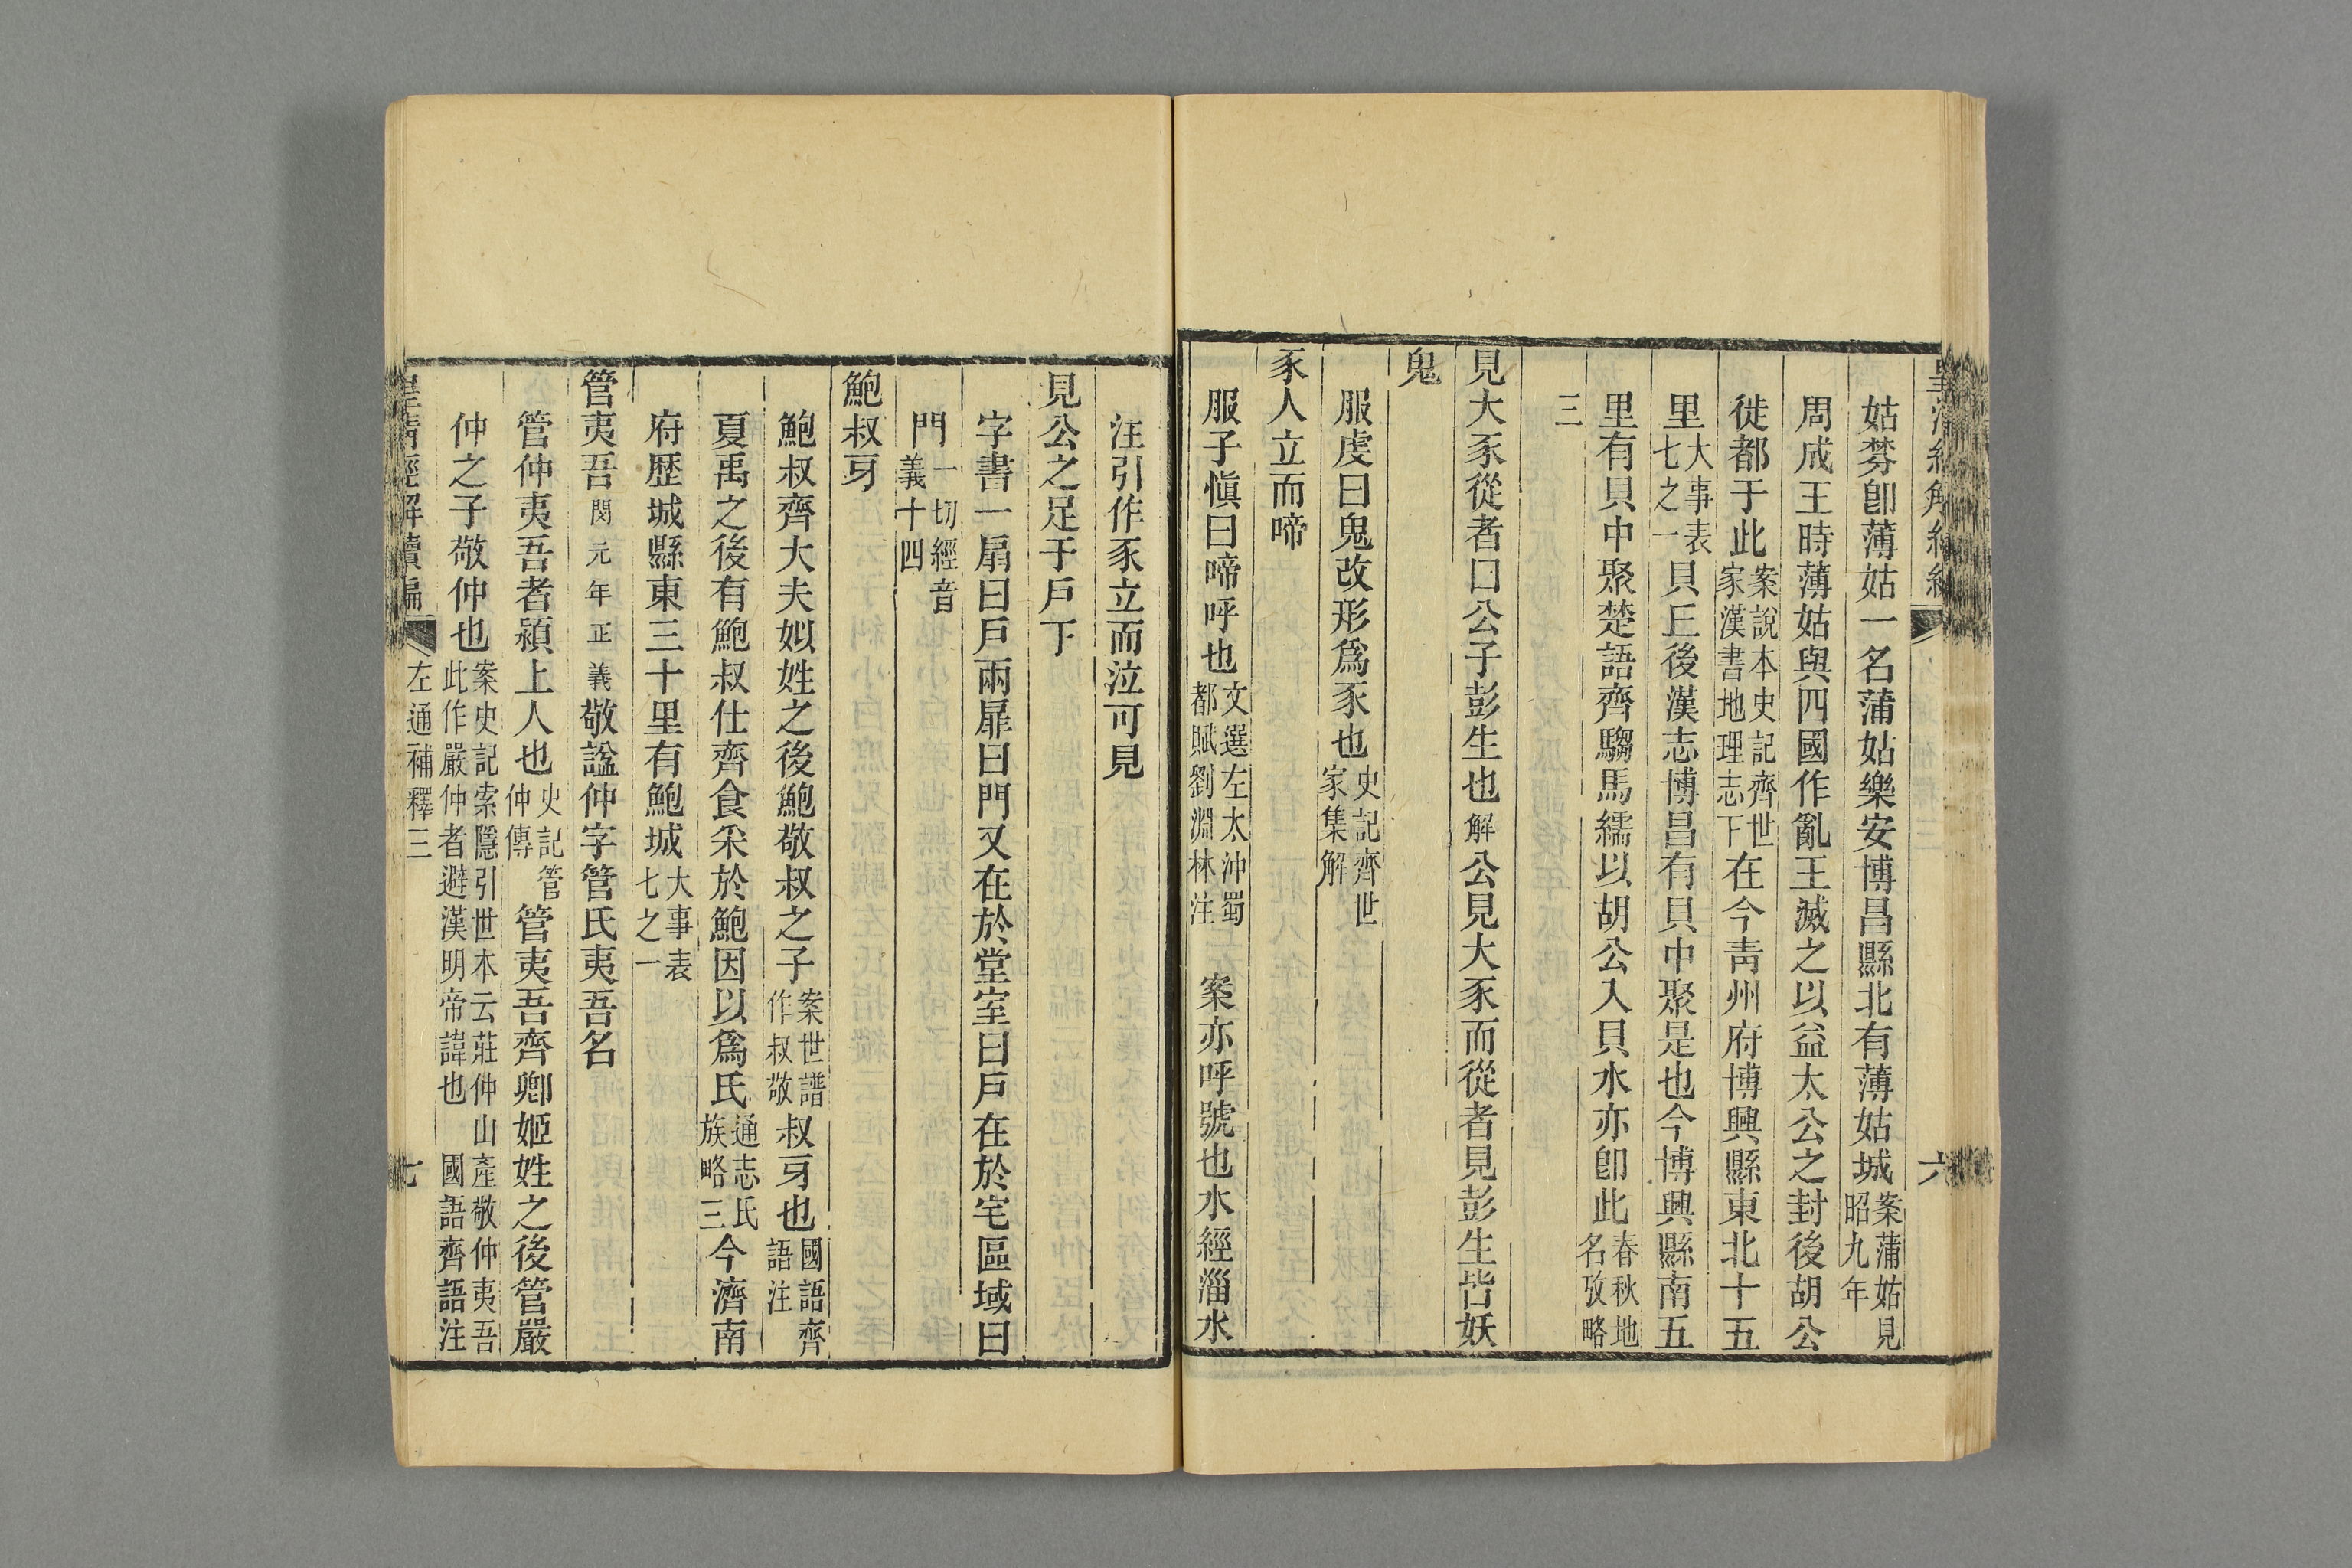 皇清經解續編 六
姑棼卽薄姑一名蒲姑樂安博昌縣北有薄姑城案蒲姑見昭九年
周成王時薄姑與四國作亂王滅之以益太公之封後胡公
徙都于此案說本史記齊世家漢書地理志下在今靑州府博興縣東北十五
里大事表七之一貝丘後漢志博昌有貝中聚是也今博興縣南五
里有貝中聚楚語齊騶馬繻以胡公入貝水亦卽此春秋地名攷略
三
見大豕從者曰公子彭生也解公見大豕而從者見彭生皆妖
鬼
服虔曰鬼改形爲豕也史記齊世家集解
豕人立而啼
服子愼曰啼呼也文選左太沖蜀都賦劉淵林注 案亦呼號也水經淄水
注引作豕立而泣可見
見公之足于戶下
字書一扇曰戶兩扉曰門又在於堂室曰戶在於宅區域曰
門一切經音義十四
鮑叔牙
鮑叔齊大夫姒姓之後鮑敬叔之子案世譜作叔敬叔牙也國語齊語注
夏禹之後有鮑叔仕齊食采於鮑因以爲氏通志氏族略三今濟南
府歷城縣東三十里有鮑城大事表七之一
管夷吾閔元年正義敬諡仲字管氏夷吾名
管仲夷吾者潁上人也史記管仲傳管夷吾齊卿姬姓之後管嚴
仲之子敬仲也案史記索隱引世本云莊仲山產敬仲夷吾此作嚴仲者避漢明帝諱也 國語齊語注
皇清經解續編 左通補釋三 七